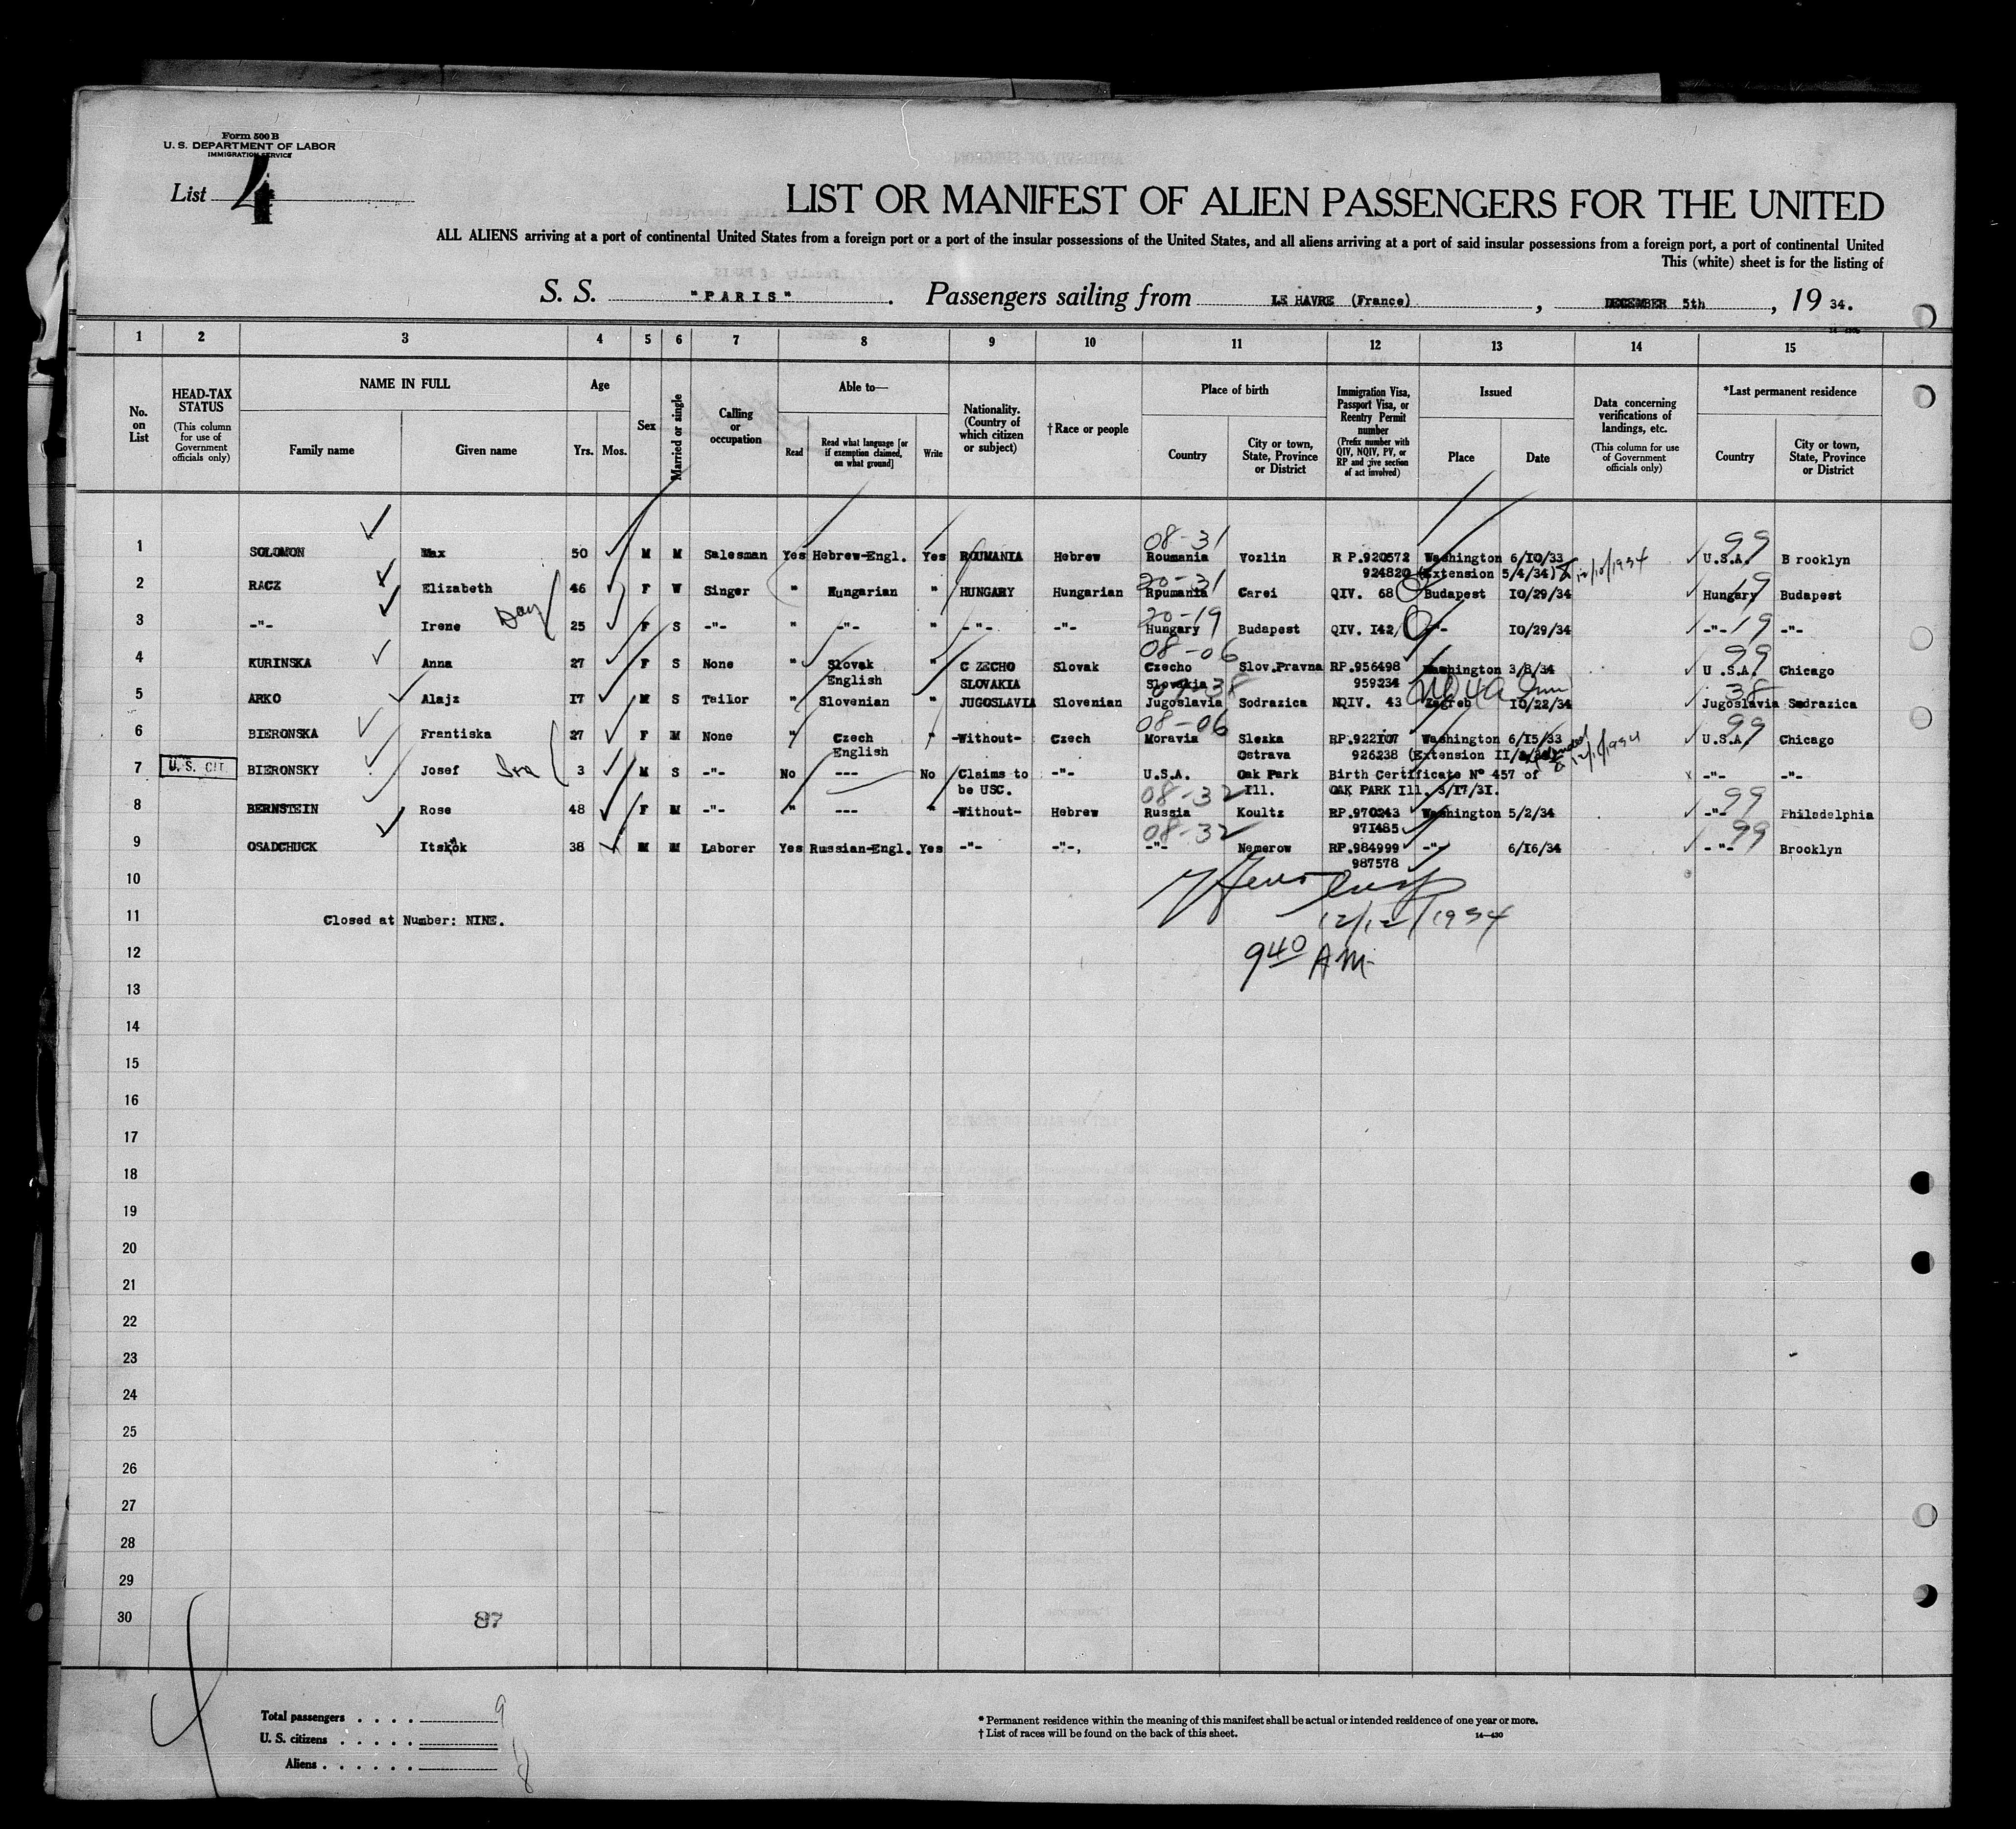 Form 500 B
U. S. DEPARTMENT OF LABOR
IMMIGRATION SERVICE
List 4
LIST OR MANIFEST OF ALIEN PASSENGERS FOR THE UNITED
ALL ALIENS arriving at a port of continental United States from a foreign port or a port of the insular possessions of the United States, and all aliens arriving at a port of said insular possessions from a foreign port, a port of continental United
This (white) sheet is for the listing of
S. S. "PARIS". Passengers sailing from LE HAVRE (France), DECEMBER 5th, 19 34.
1 2 3 4 5 6 7 8 9 10 11 12 13 14 15
No. on List
HEAD-TAX STATUS
(This column for use of Government officials only)
NAME IN FULL
Family name Given name
Age
Yrs. Mos.
Sex
Married or single
Calling or occupation
Able to—
Read Read what language [or if exemption claimed, on what ground] Write
Nationality. (Country of which citizen or subject)
†Race or people
Place of birth
Country City or town, State, Province or District
Immigration Visa, Passport Visa, or Reentry Permit number
(Prefix number with QIV, NQIV, PV, or RP and give section of act involved)
Issued
Place Date
Data concerning verifications of landings, etc.
(This column for use of Government officials only)
*Last permanent residence
Country City or town, State, Province or District
08-31 99
1 SOLOMON Max 50 M M Salesman Yes Hebrew-Engl. Yes ROUMANIA Hebrew Roumania Vozlin R P.920572 Washington 6/10/33 U.S.A. Brooklyn
924820 (Extension 5/4/34) 12/10/1934
20-31 19
2 RACZ Elizabeth 46 F W Singer " Hungarian " HUNGARY Hungarian Roumania Carei QIV. 68 Budapest 10/29/34 Hungary Budapest
Dau
20-19 19
3 -"- Irene 25 F S -"- " -"- " -"- -"- Hungary Budapest QIV. 142 -"- 10/29/34 -"- -"-
08-06 99
4 KURINSKA Anna 27 F S None " Slovak " CZECHO Slovak Czecho Slov.Pravna RP.956498 Washington 3/8/34 U.S.A. Chicago
English SLOVAKIA Slovakia 959234
38
5 ARKO Alajz 17 M S Tailor " Slovenian " JUGOSLAVIA Slovenian Jugoslavia Sodrazica NQIV. 43 Zagreb 10/22/34 Jugoslavia Sodrazica
08-06 99
6 BIERONSKA Frantiska 27 F M None " Czech " -Without- Czech Moravia Slezka RP.922107 Washington 6/15/33 U.S.A. Chicago
English Ostrava 926238 (Extension
U. S. CIT.
7 BIERONSKY Josef 3 M S -"- No --- No Claims to -"- U.S.A. Oak Park Birth Certificate N° 457 of -"- -"-
be USC. Ill. OAK PARK Ill. 3/17/31.
08-32 99
8 BERNSTEIN Rose 48 F M -"- " --- " -Without- Hebrew Russia Koultz RP.970243 Washington 5/2/34 -"- Philadelphia
971485
08-32 99
9 OSADCHUCK Itskok 38 M M Laborer Yes Russian-Engl. Yes -"- -"-, -"- Nemerow RP.984999 -"- 6/16/34 -"- Brooklyn
987578
10
11 Closed at Number: NINE.
12/12/1934
12
9 40 AM
13
14
15
16
17
18
19
20
21
22
23
24
25
26
27
28
29
30
87
Total passengers 9
U. S. citizens 1
Aliens 8
* Permanent residence within the meaning of this manifest shall be actual or intended residence of one year or more.
† List of races will be found on the back of this sheet.
14—430